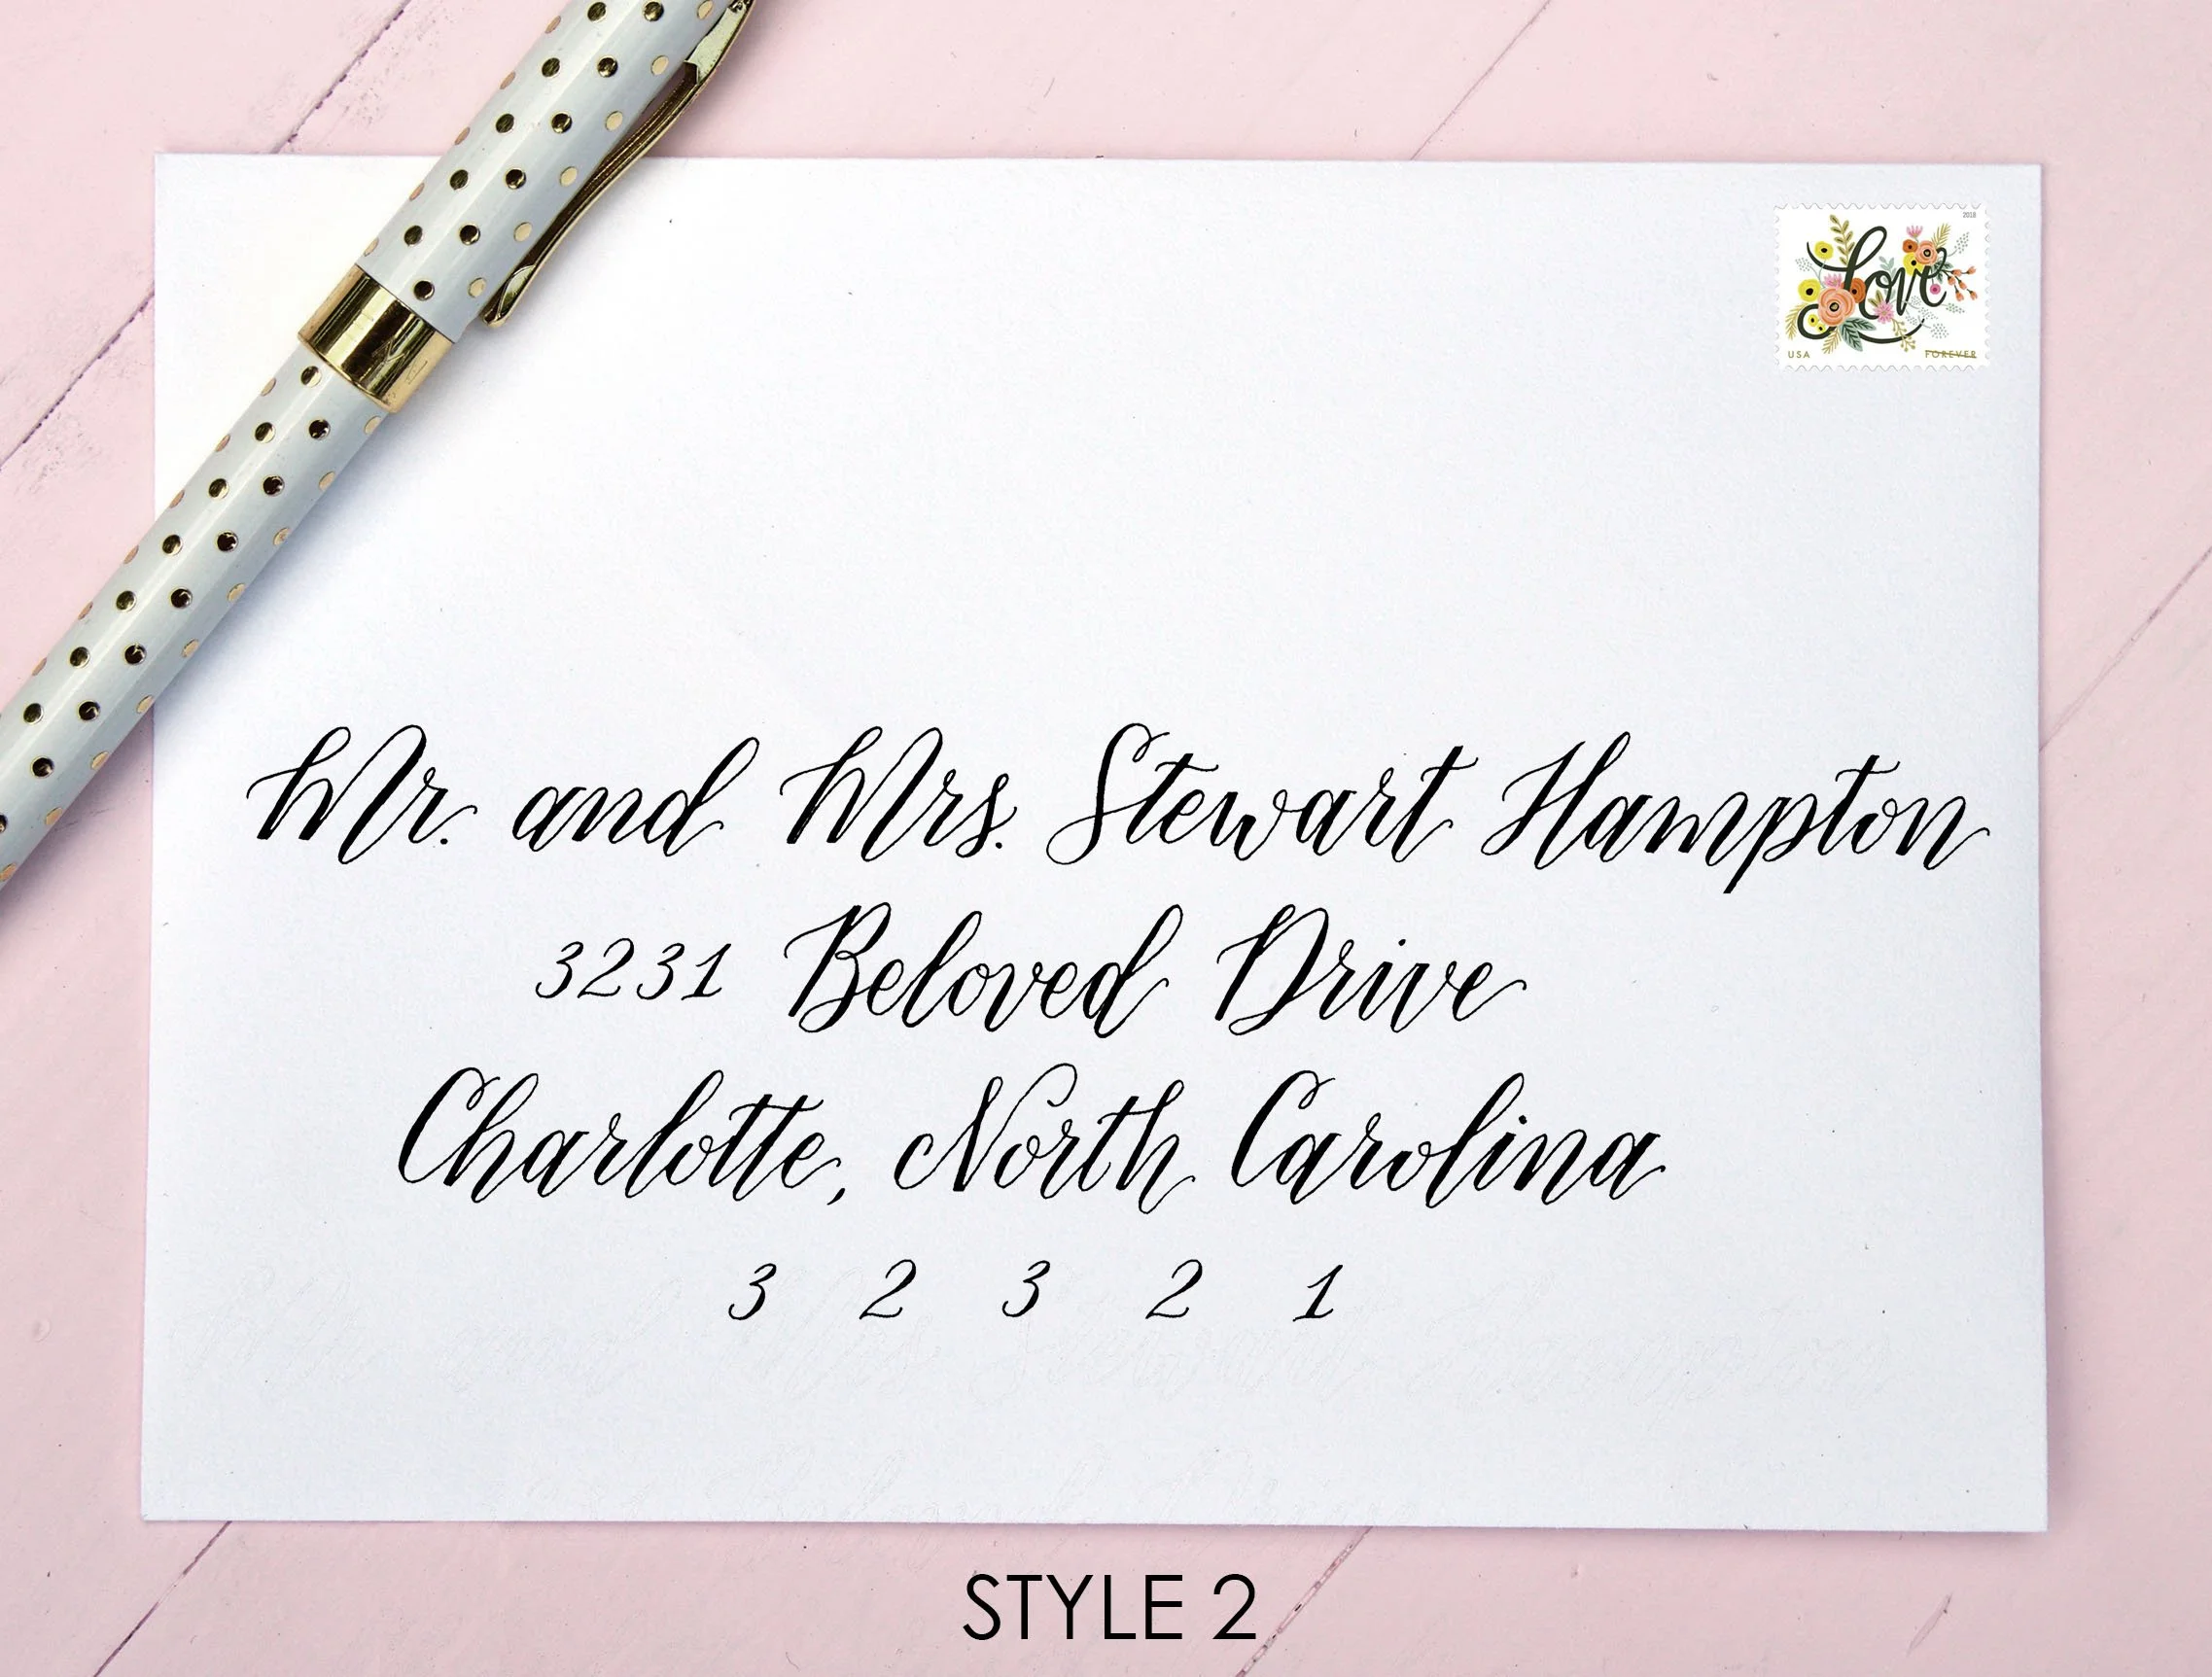 2018
Love
USA FOREVER
Mr. and Mrs. Stewart Hampton
3231 Beloved Drive
Charlotte, North Carolina
3 2 3 2 1
STYLE 2